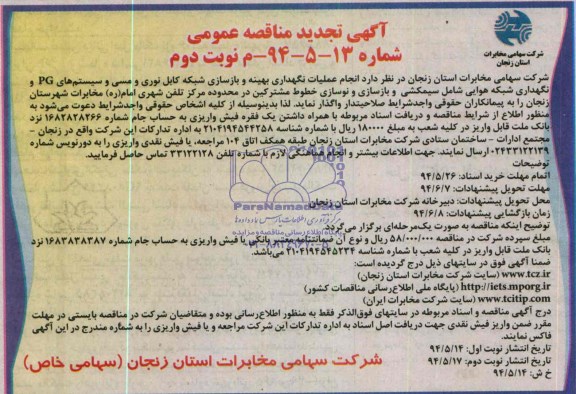 شرکت سهامی مخابرات
استان زنجان
آگهی تجدید مناقصه عمومی
شماره ۱۳-۵-۹۴-م نوبت دوم
شرکت سهامی مخابرات استان زنجان در نظر دارد انجام عملیات نگهداری بهینه و بازسازی شبکه کابل نوری و مسی و سیستم‌های PG و
نگهداری شبکه هوایی شامل سیمکشی و بازسازی و نوسازی خطوط مشترکین در محدوده مرکز تلفن شهری امام(ره) مخابرات شهرستان
زنجان را به پیمانکاران حقوقی واجدشرایط صلاحیتدار واگذار نماید. لذا بدینوسیله از کلیه اشخاص حقوقی واجدشرایط دعوت می‌شود به
منظور اطلاع از شرایط مناقصه و دریافت اسناد مربوطه با همراه داشتن یک فقره فیش واریزی به حساب جام شماره ۱۶۸۲۸۲۸۲۶۶ نزد
بانک ملت قابل واریز در کلیه شعب به مبلغ ۱۸۰۰۰۰ ریال با شماره شناسه ۲۱۰۴۱۹۴۵۴۴۲۵۸ به اداره تدارکات این شرکت واقع در زنجان –
مجتمع ادارات – ساختمان ستادی شرکت مخابرات استان زنجان طبقه همکف اتاق ۱۰۴ مراجعه، یا فیش نقدی واریزی را به دورنویس شماره
۰۲۴۳۳۱۲۲۱۳۹ ارسال نمایند. جهت اطلاعات بیشتر و انجام هماهنگی لازم با شماره تلفن ۳۳۱۲۲۱۲۸ تماس حاصل فرمایید.
توضیحات
اتمام مهلت خرید اسناد: ۹۴/۵/۲۶
مهلت تحویل پیشنهادات: ۹۴/۶/۷
محل تحویل پیشنهادات: دبیرخانه شرکت مخابرات استان زنجان
زمان بازگشایی پیشنهادات: ۹۴/۶/۸
توضیح اینکه مناقصه به صورت یک‌مرحله‌ای برگزار می‌گردد.
مبلغ سپرده شرکت در مناقصه ۵۸/۰۰۰/۰۰۰ ریال و نوع آن ضمانتنامه معتبر بانکی یا فیش واریزی به حساب جام شماره ۱۶۸۳۸۳۸۳۸۷ نزد
بانک ملت قابل واریز در کلیه شعب با شماره شناسه ۲۱۰۴۱۹۴۵۴۵۲۳۴ می‌باشد.
ضمنا آگهی فوق در سایتهای ذیل درج گردیده است:
www.tcz.ir (سایت شرکت مخابرات استان زنجان)
http://iets.mporg.ir (پایگاه ملی اطلاع‌رسانی مناقصات کشور)
www.tcitip.com (سایت شرکت مخابرات ایران)
درج آگهی مناقصه و اسناد مربوطه در سایتهای فوق‌الذکر فقط به منظور اطلاع‌رسانی بوده و متقاضیان شرکت در مناقصه بایستی در مهلت
مقرر ضمن واریز فیش نقدی جهت دریافت اصل اسناد به اداره تدارکات این شرکت مراجعه و یا فیش واریزی را به شماره مندرج در این آگهی
فاکس نمایند.
تاریخ انتشار نوبت اول: ۹۴/۵/۱۴
تاریخ انتشار نوبت دوم: ۹۴/۵/۱۷
خ ش: ۹۴/۵/۱۴
شرکت سهامی مخابرات استان زنجان (سهامی خاص)
ParsNamadData